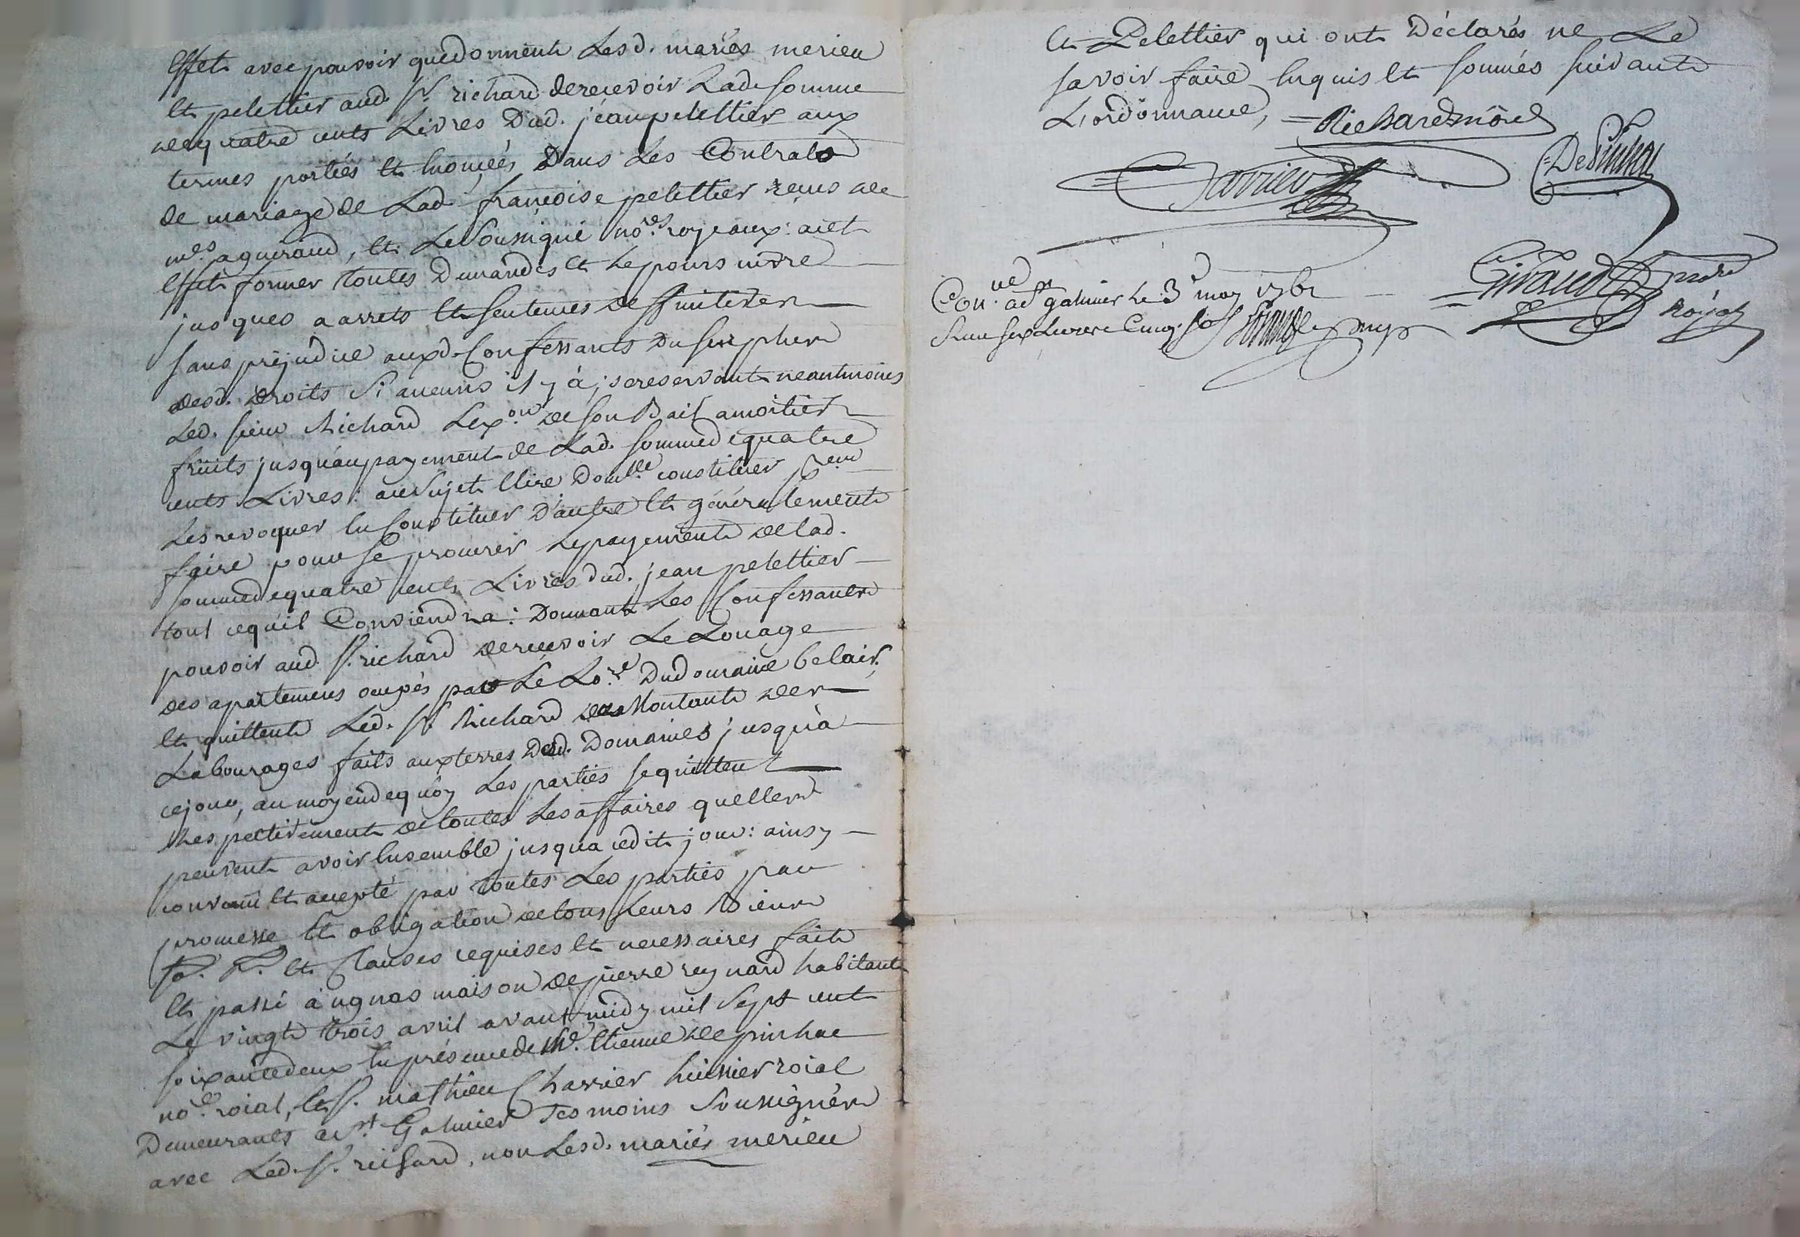 Effet avec pouvoir que donnent Lesd. mariés merieu
Et pelettier aud. Sr. richard de recevoir Lade somme
de quatre cents Livres Dud. jean pelettier aux
termes portés Et Enoncés Dans Les Contrats
de mariage de Lad. françoise pelettier reçus de
mes. agueraud, Et Le soussigné nores. royeaux: a cet
Effet former toutes Demandes Et Le poursuivre
jusques a arrets Et sentences deffinitives
sans préjudice auxd. Confessants Du
desd. droits si aucuns il y à; se reservant neantmoins
Led. sieur Richard Lexon. de son Bail a moitiet
fruits jusqu'au payement de Lad. somme de quatre
cents Livres: au sujet Elire Domlle. constituer
Les revoquer En constituer D'autre Et généralement
faire pour se procurer Le payement de lad.
somme de quatre cents Livres dud. jean pelettier
tout ce qu'il Conviendra: Donnant Les Confessants
pouvoir aud. Sr. richard de recevoir Le Louage
des apartemens occupés par Le Dud domaine belair,
Et quittent Led. Sr. Richard du Montant des
Labourages faits aux terres Dud. Domaine jusqu'à
ce jour, au moyen de quoy Les parties se quittent
Respectivement de toutes Les affaires quelles
peuvent avoir Ensemble jusqua cedit jour: ainsy
convenu Et accepté par toutes Les parties par
promesse Et obligation de tous Leurs Biens
Et Clauses requises Et necessaires fait
Et passé à ugnas maison de pierre reynard habitant
Le vingt trois avril avant midy mil sept cent
soixante deux En présence de Me. Etienne de pinhac
nore. roial, Et Sr. mathieu Charrier huissier roial
Demeurants a St Galmier Tesmoins Soussignés
avec Led. Sr. richard, non Lesd. mariés merieu
Et Pelettier qui ont Déclarés ne Le
savoir faire Enquis Et sommés suivant
L'ordonnance,
Richard
Charrier
De Pinhac
Conné. a St galmier Le 3e may 1762
Giraud nore
Royal